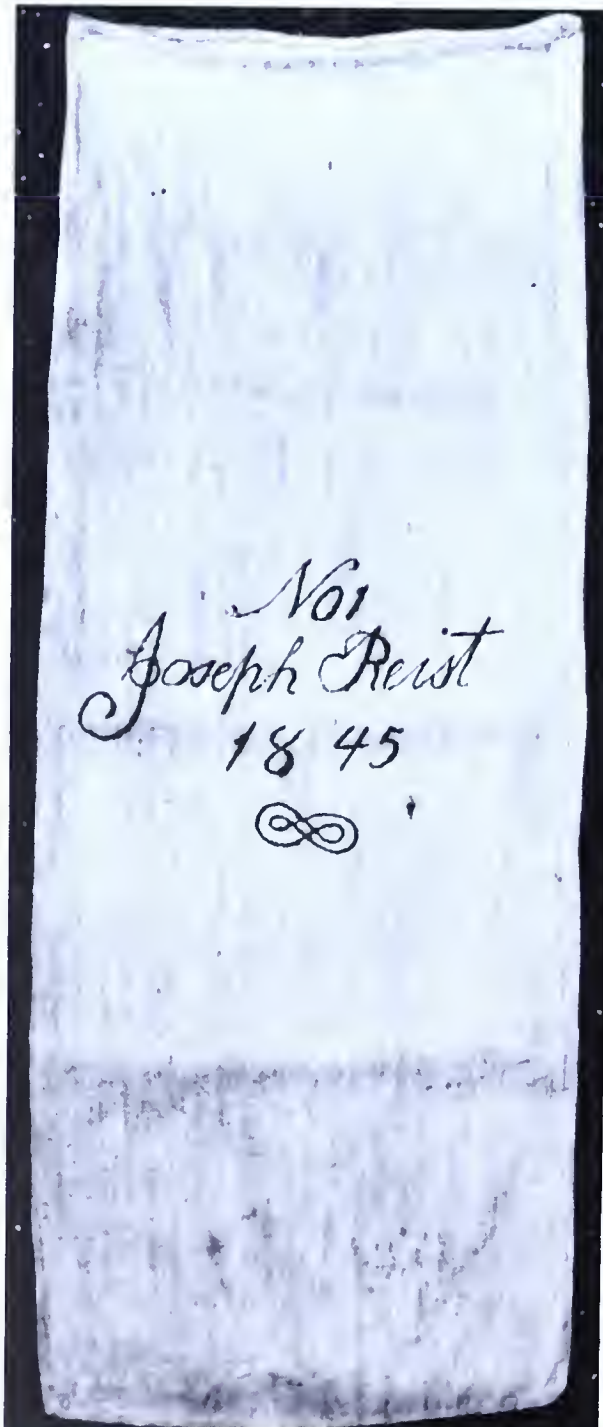 No1
Joseph Reist
1845